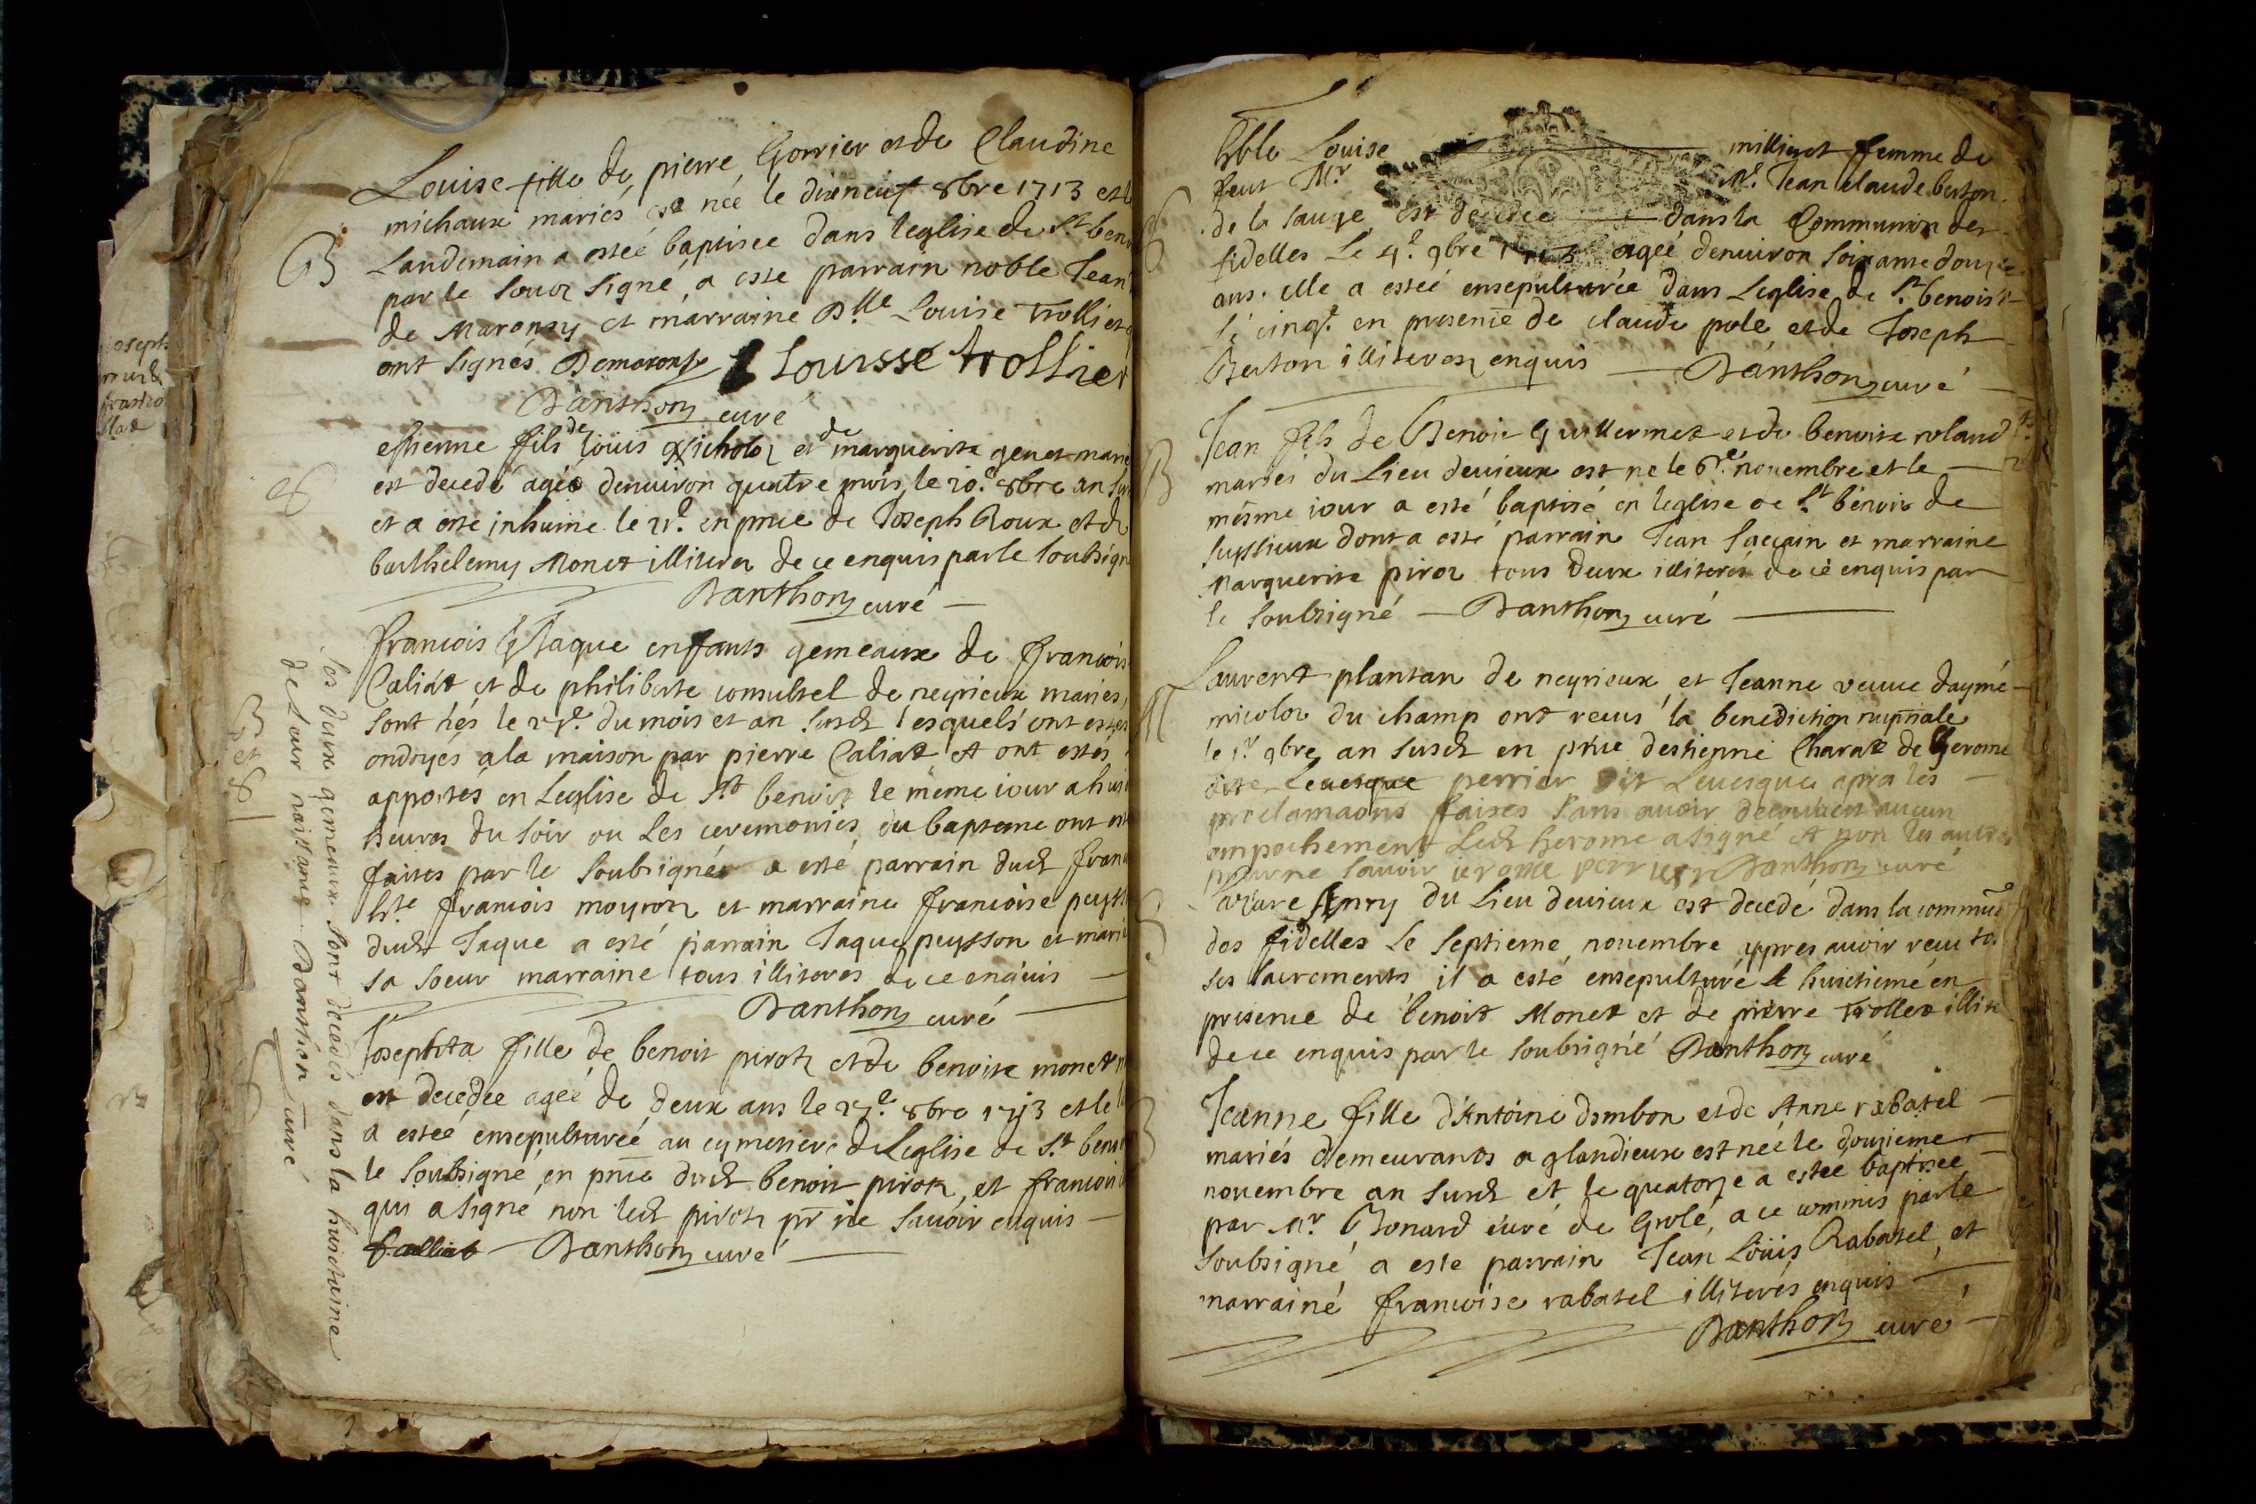 Louise fille de pierre Gorrier et de Claudine
michaux mariés est née le dixneuf 8bre 1713 et le
Landemain a estéé baptisee dans leglise de St ben
par le soubz signé, a esté parrain noble Jean
de Maronzy et marraine Dlle Louise Trolliet
ont signés Demaronzy Louisse trollier
Danthon curé
estienne fils de loüis Nicholoz et de marguerite genet marié
est decedé agéé denuiron quattre mois le 20e 8bre an sus
et a esté inhumé le 21e en pnce de Joseph Roux et de
barthelemy Monet illiterez de ce enquis par le soubsigné
Danthon curé
francois & Jaque enfants gemeaux de francois
Caliat et de philiberte consultel de neyrieux maries,
sont nés le du mois et an susdt lesquels ont estes
ondoyes a la maison par pierre Caliat et ont estés
apportés en Leglise de St benoit le méme iour a huit
heures du soir ou Les ceremonies du bapteme ont esté
faites par le soubsigné a esté parrain dudt fran
hte francois moyroz et marraine francoise peyss
dudt Jaque a esté parrain Jaque peysson et mari
sa soeur marraine tous illiteres de ce enquis
Danthon curé
Josephta fille de benoit piroz et de benoite monet
est decedée ageé de deux ans le 27e 8bre 1713 et le
a estéé ensepulturéé au cymetiere de Leglise de St benoi
le soubsigné en pnce dudt benoit piroz, et francois
qui a signé non ledt piroz pr ne sauoir enquis
Danthon curé
B
Les deux gemeaux sont decedés dans la huictaine
de Leur naissance Danthon curé
B et
hble Louise millieret femme de
feut Mr Mr. Jean claude berton
de la sauge est decedee dans la Communion des
fidelles Le 4e 9bre ageé denuiron soixante douze
ans. elle a estéé ensepulturéé dans Leglise de St benoist
le cinqe en presence de claude pole et de Joseph
Berton illiterez enquis Danthon curé
Jean fils de Benoit Guillermet et de benoite roland
mariés du Lieu deuieux est né le 6e nouembre et le
mésme iour a esté baptisé en leglise de St bénoit de
seyssieux dont a esté parrain Jean et marraine
marguerite piroz tous deux illiterés de ce enquis par
le soubsigné Danthon curé
Laurent plantan de neyrieux et Jeanne veuue daymé
nicoloz du champ ont reçus la benediction nuptiale
le 9bre an susdt en pnce destienne Charat de Gerome
dite Leuesque perrier dit Leuesque apres les
proclamaons faites sans auoir decouuert aucun
empechement Ledt Gerome a signé et non les autres
pour ne sauoir jerome perrier Danthon curé
du Lieu deuieux est decedé dans la commuon
des fidelles Le septieme nouembre appres auoir reçu to
ses sacrements il a esté ensepulturé le huictiemé en
presence de benoit Monet et de pierre Trollet illite
de ce enquis par le soubsigné Danthon curé
Jeanne fille d'Antoine dombon et de Anne rabatel
mariés demeurants a glandieux est neé le douzieme
nouembre an susdt et le quatorze a estéé baptisee
par Mr Bonard curé de Grolé, a ce commis par le
soubsigné a esté parrain Jean Loüis Rabatel, et
marrainé francoise rabatel illiterés enquis
Danthon curé